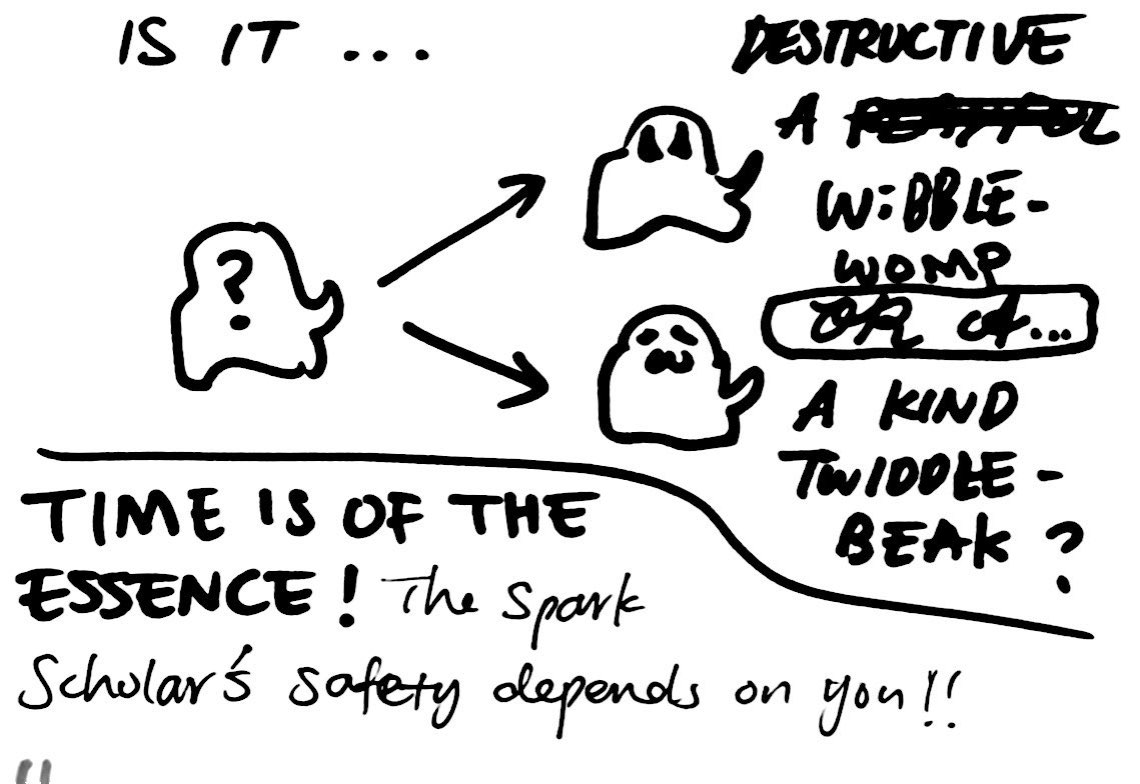 IS IT ...
DESTRUCTIVE
A
WIBBLE-
WOMP
OR A...
A KIND
TWIDDLE-
BEAK ?
?
TIME IS OF THE
ESSENCE! The Spark
Scholar's safety depends on you!!